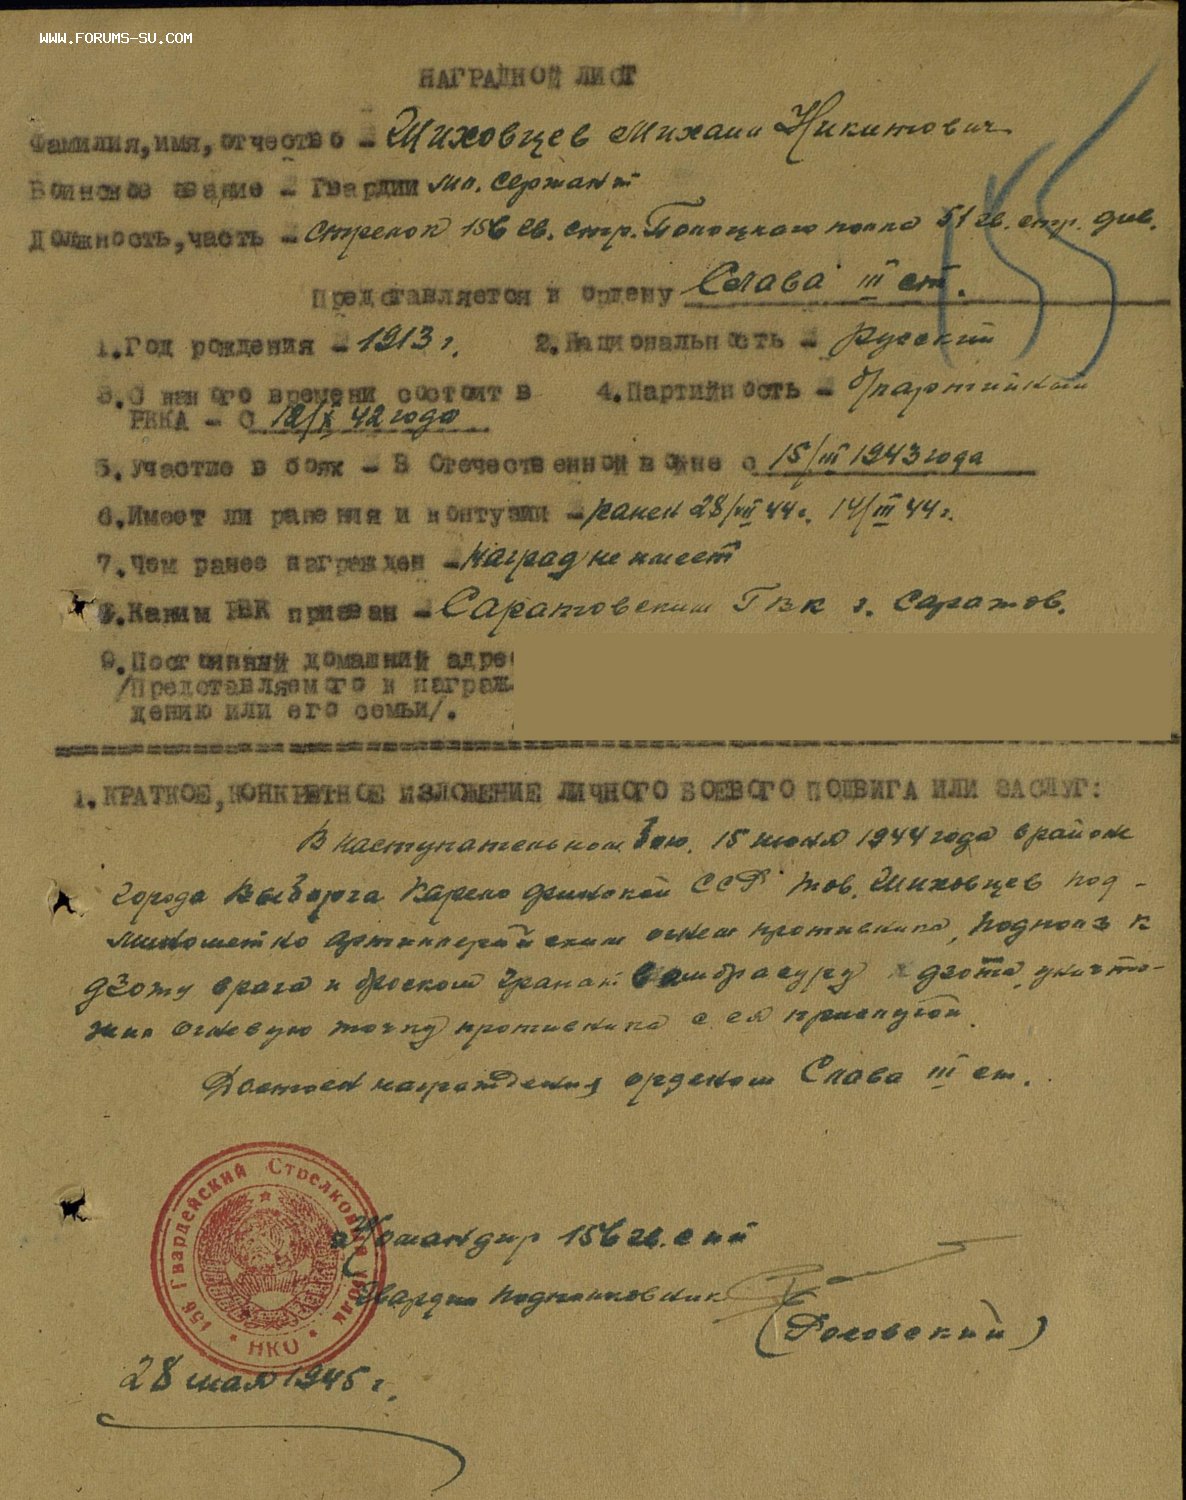 WWW.FORUMS-SU.COM
НАГРАДНОЙ ЛИСТ
155
Фамилия, имя, отчество - Шиховцев Михаил Никитович
Воинское звание - Гвардии мл. сержант
Должность, часть - стрелок 156 гв. стр. полка 51 гв. стр. див.
Представляется к ордену Слава III ст.
1. Год рождения - 1913 г. 2. Национальность - русский
3. С какого времени состоит в 4. Партийность - б/партийный
РККА - С 12/X 42 года
5. Участие в боях - В Отечественной войне с 15/III 1943 года
6. Имеет ли ранения и контузии - ранен 28/VII 44 г. 14/III 44 г.
7. Чем ранее награжден - наград не имеет
8. Каким РВК призван - Саратовским ГВК г. Саратов.
9. Постоянный домашний адрес
/Представляемого к награж-
дению или его семьи/.
1. КРАТКОЕ, КОНКРЕТНОЕ ИЗЛОЖЕНИЕ ЛИЧНОГО БОЕВОГО ПОДВИГА ИЛИ ЗАСЛУГ:
В наступательном бою 15 июня 1944 года в районе
города Выборга Карело финской ССР тов. Шиховцев под-
минометно артиллерийским огнем противника, подполз к
дзоту врага и броском гранат в амбразуру дзота, уничто-
жил огневую точку противника с ея прислугой.
Достоен награждения орденом Слава III ст.
156 Гвардейский Стрелковый полк
НКО
Командир 156 гв. сп
Гвардии подполковник
28 мая 1945 г.